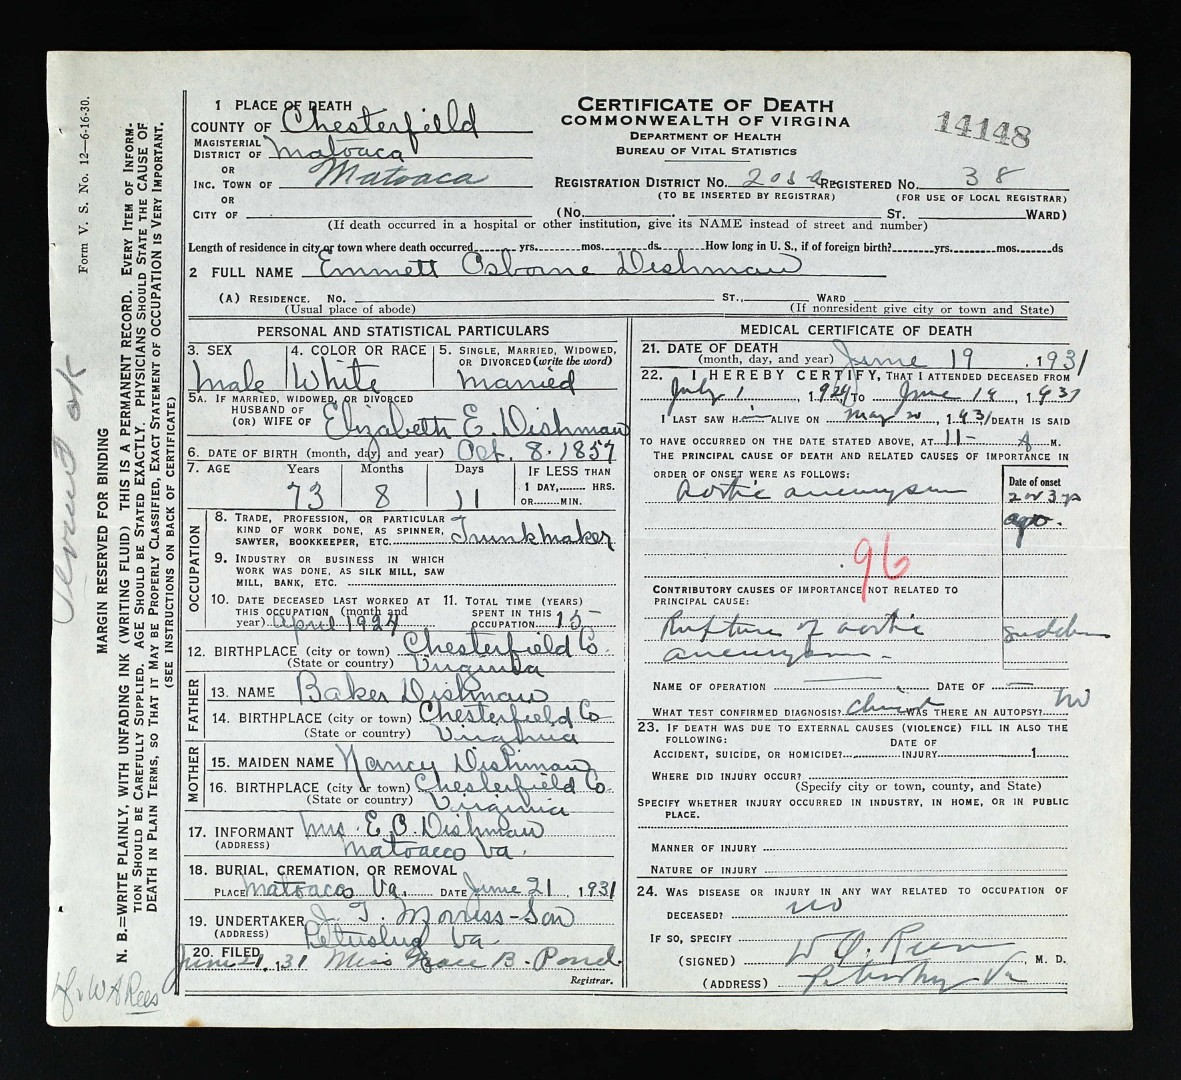 Form V. S. No. 12—6-16-30.
MARGIN RESERVED FOR BINDING
N. B.—WRITE PLAINLY, WITH UNFADING INK (WRITING FLUID) THIS IS A PERMANENT RECORD. EVERY ITEM OF INFORM-
TION SHOULD BE CAREFULLY SUPPLIED. AGE SHOULD BE STATED EXACTLY. PHYSICIANS SHOULD STATE THE CAUSE OF
DEATH IN PLAIN TERMS, SO THAT IT MAY BE PROPERLY CLASSIFIED, EXACT STATEMENT OF OCCUPATION IS VERY IMPORTANT.
(SEE INSTRUCTIONS ON BACK OF CERTIFICATE)
ok
W A Rees
CERTIFICATE OF DEATH
COMMONWEALTH OF VIRGINA
DEPARTMENT OF HEALTH
BUREAU OF VITAL STATISTICS
14148
1 PLACE OF DEATH
COUNTY OF Chesterfield
MAGISTERIAL
DISTRICT OF Matoaca
OR
INC. TOWN OF Matoaca
OR
CITY OF
REGISTRATION DISTRICT NO. REGISTERED NO. 38
(TO BE INSERTED BY REGISTRAR) (FOR USE OF LOCAL REGISTRAR)
(NO. ST. WARD)
(If death occurred in a hospital or other institution, give its NAME instead of street and number)
Length of residence in city or town where death occurred yrs. mos. ds. How long in U. S., if of foreign birth? yrs. mos. ds
2 FULL NAME Emmett Osborne Dishman
(A) RESIDENCE. NO. ST., WARD
(Usual place of abode) (If nonresident give city or town and State)
PERSONAL AND STATISTICAL PARTICULARS
3. SEX 4. COLOR OR RACE 5. SINGLE, MARRIED, WIDOWED,
OR DIVORCED (write the word)
Male White Married
5A. IF MARRIED, WIDOWED, OR DIVORCED
HUSBAND OF
(OR) WIFE OF Elizabeth E. Dishman
6. DATE OF BIRTH (month, day and year) Oct. 8. 1857
7. AGE Years Months Days IF LESS THAN
1 DAY, HRS.
73 8 11 OR MIN.
OCCUPATION
8. TRADE, PROFESSION, OR PARTICULAR
KIND OF WORK DONE, AS SPINNER,
SAWYER, BOOKKEEPER, ETC. Trunkmaker
9. INDUSTRY OR BUSINESS IN WHICH
WORK WAS DONE, AS SILK MILL, SAW
MILL, BANK, ETC.
10. DATE DECEASED LAST WORKED AT
THIS OCCUPATION (month and
year) April 1924
11. TOTAL TIME (YEARS)
SPENT IN THIS
OCCUPATION 15
12. BIRTHPLACE (city or town) Chesterfield Co.
(State or country) Virginia
FATHER
13. NAME Baker Dishman
14. BIRTHPLACE (city or town) Chesterfield Co
(State or country) Virginia
MOTHER
15. MAIDEN NAME Nancy Dishman
16. BIRTHPLACE (city or town) Chesterfield Co.
(State or country) Virginia
17. INFORMANT Mrs. E. O. Dishman
(ADDRESS) Matoacco Va.
18. BURIAL, CREMATION, OR REMOVAL
PLACE Matoaca Va. DATE June 21, 1931
19. UNDERTAKER J. T. Morriss-Son
(ADDRESS) Petersburg Va
20. FILED June 21, 31 Miss Grace B. Pond
Registrar.
MEDICAL CERTIFICATE OF DEATH
21. DATE OF DEATH
(month, day, and year) June 19, 1931
22. I HEREBY CERTIFY, THAT I ATTENDED DECEASED FROM
July 1, 1924 TO June 19, 1931
I LAST SAW HIM ALIVE ON May 20, 1931 DEATH IS SAID
TO HAVE OCCURRED ON THE DATE STATED ABOVE, AT 11- A M.
THE PRINCIPAL CAUSE OF DEATH AND RELATED CAUSES OF IMPORTANCE IN
ORDER OF ONSET WERE AS FOLLOWS:
Date of onset
Aortic aneurysm 2 or 3 yrs
ago.
96
CONTRIBUTORY CAUSES OF IMPORTANCE NOT RELATED TO
PRINCIPAL CAUSE:
Rupture of aortic sudden
aneurysm -
NAME OF OPERATION DATE OF
WHAT TEST CONFIRMED DIAGNOSIS? WAS THERE AN AUTOPSY? No
23. IF DEATH WAS DUE TO EXTERNAL CAUSES (VIOLENCE) FILL IN ALSO THE
FOLLOWING:
DATE OF
ACCIDENT, SUICIDE, OR HOMICIDE? INJURY 1
WHERE DID INJURY OCCUR?
(Specify city or town, county, and State)
SPECIFY WHETHER INJURY OCCURRED IN INDUSTRY, IN HOME, OR IN PUBLIC
PLACE.
MANNER OF INJURY
NATURE OF INJURY
24. WAS DISEASE OR INJURY IN ANY WAY RELATED TO OCCUPATION OF
DECEASED? no
IF SO, SPECIFY
(SIGNED) M. D.
(ADDRESS) Petersburg Va